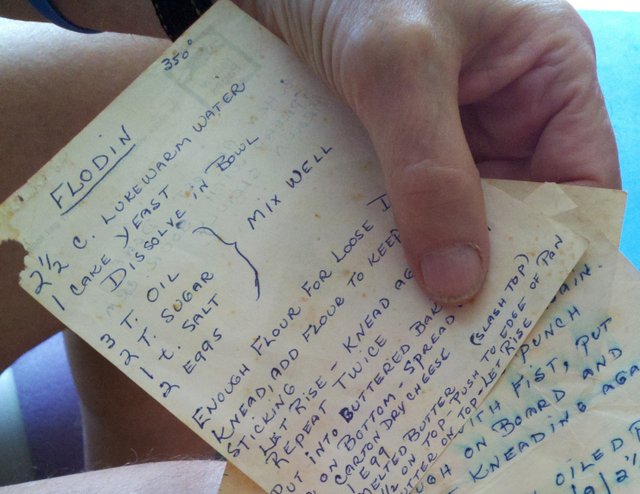 350°
FLODIN
2½ C. LUKEWARM WATER
1 CAKE YEAST
DISSOLVE IN BOWL
3 T. OIL
2 T. SUGAR
1 t. SALT
2 EGGS
MIX WELL
ENOUGH FLOUR FOR LOOSE
KNEAD, ADD FLOUR TO KEEP
STICKING
LET RISE - KNEAD
REPEAT TWICE
PUT INTO BUTTERED
ON BOTTOM - SPREAD
CARTON DRY CHEESE
1 EGG
MELTED BUTTER
½ ON TOP - PUSH TO EDGE OF PAN
BUTTER ON TOP. LET RISE
(SLASH TOP)
PUNCH
WITH FIST, PUT
ON BOARD AND
KNEADING
OILED